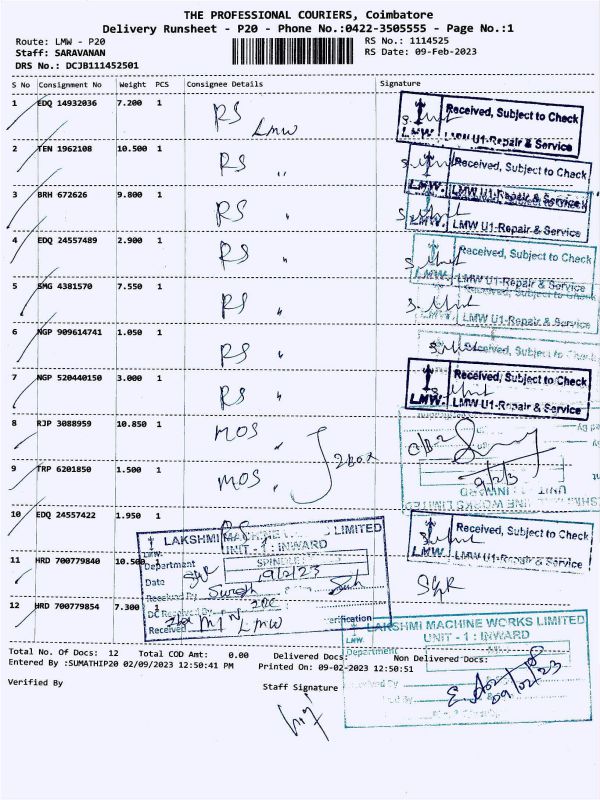 THE PROFESSIONAL COURIERS, Coimbatore
Delivery Runsheet - P20 - Phone No.:0422-3505555 - Page No.:1
Route: LMW - P20 RS No.: 1114525
Staff: SARAVANAN RS Date: 09-Feb-2023
DRS No.: DCJB111452501
S No Consignment No Weight PCS Consignee Details Signature
1 EDQ 14932036 7.200 1 RS Lmw Received, Subject to Check
LMW. LMW U1-Repair & Service
2 TEN 1962108 10.500 1 RS " Received, Subject to Check
LMW. LMW U1-Repair & Service
3 BRH 672626 9.800 1 RS "
LMW U1-Repair & Service
4 EDQ 24557489 2.900 1 RS " Received, Subject to Check
LMW. LMW U1-Repair & Service
5 SMG 4381570 7.550 1 RS "
LMW U1-Repair & Service
6 NGP 909614741 1.050 1 RS " Received, Subject to Check
7 NGP 520440150 3.000 1 RS " Received, Subject to Check
LMW. LMW U1-Repair & Service
8 RJP 3088959 10.850 1 MOS " 2 Box
9 TRP 6201850 1.500 1 MOS " 9/2/3
UNIT - 1 : INWARD
10 EDQ 24557422 1.950 1 RS Received, Subject to Check
LMW. LMW U1-Repair & Service
LAKSHMI MACHINE WORKS LIMITED
UNIT - 1 : INWARD
11 HRD 700779840 10.500 Department SPINDLE
Date 9/2/23
Received By
12 HRD 700779854 7.300 DC Received By
Received Lmw
LAKSHMI MACHINE WORKS LIMITED
UNIT - 1 : INWARD
Department
Total No. Of Docs: 12 Total COD Amt: 0.00 Delivered Docs: Non Delivered Docs:
Entered By :SUMATHIP20 02/09/2023 12:50:41 PM Printed On: 09-02-2023 12:50:51
09/02/23
Verified By Staff Signature